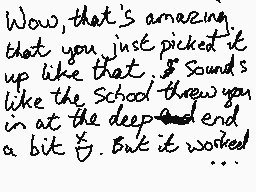 Wow, that's amazing
that you just picked it
up like that. Sounds
like the School threw you
in at the deep end
a bit. But it worked
...